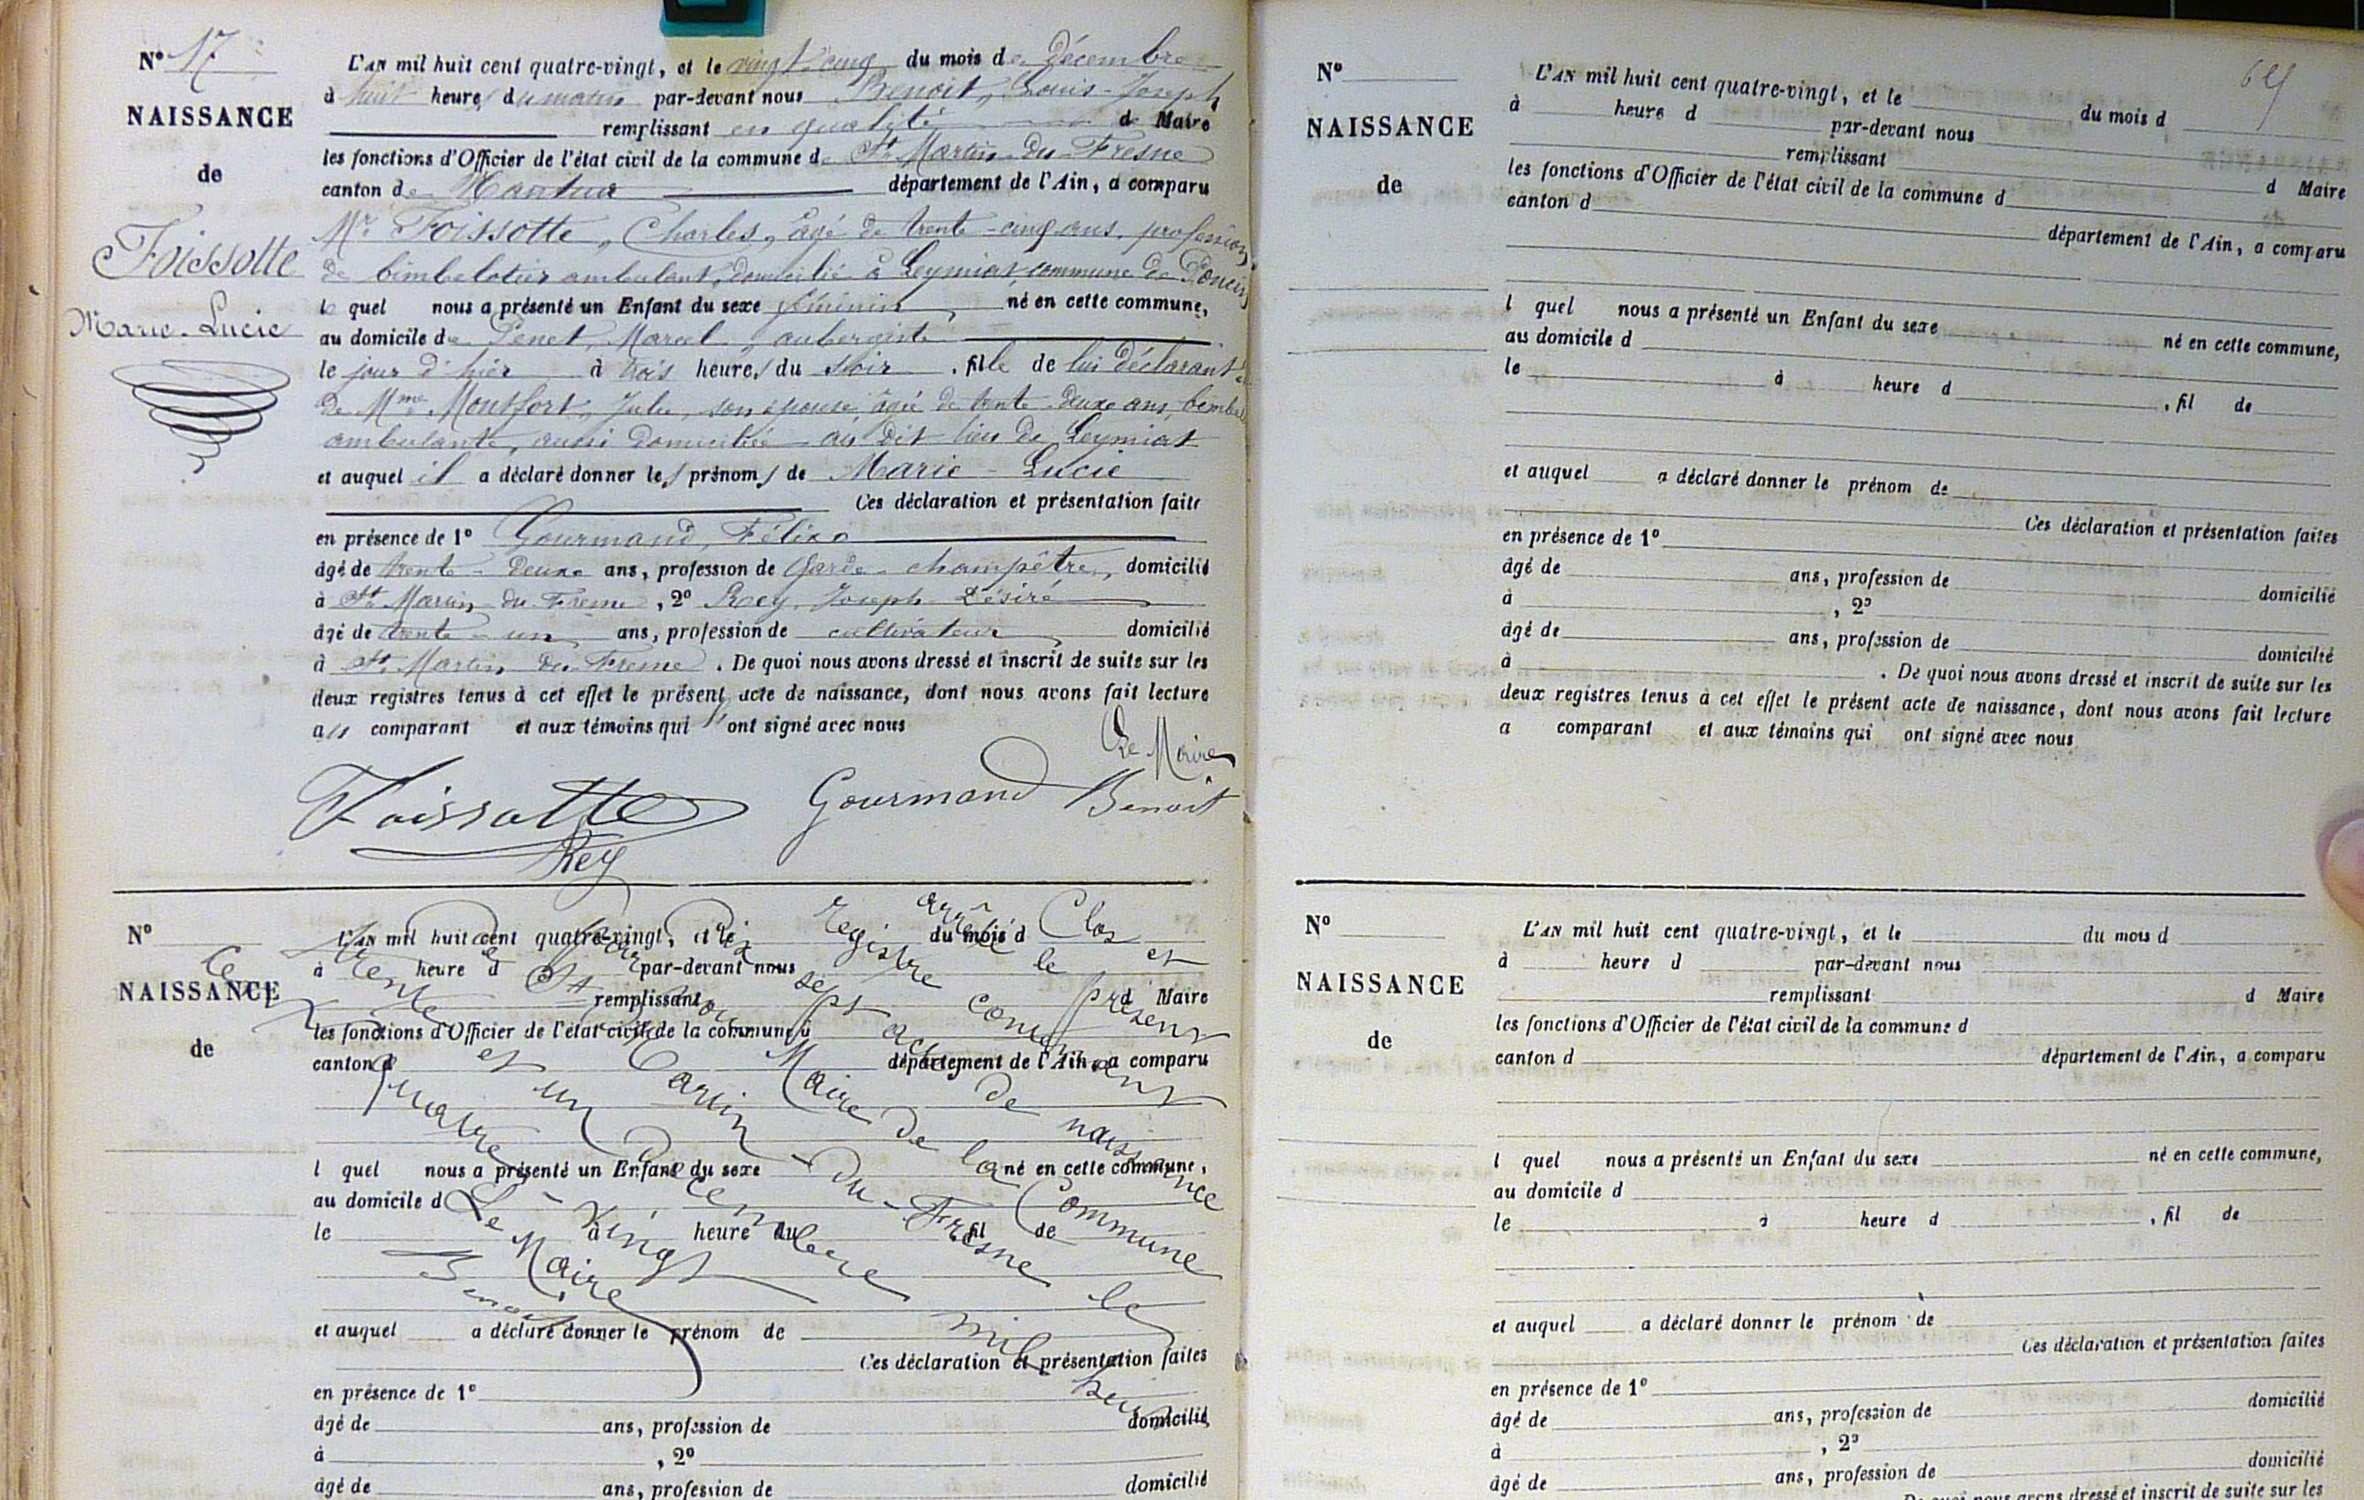 N° 17
NAISSANCE
de
Foissotte
Marie-Lucie
L'AN mil huit cent quatre-vingt, et le vingt-cinq du mois de Décembre
à huit heures du matin par-devant nous Benoit, Louis-Joseph
remplissant en qualité d Maire
les fonctions d'Officier de l'état civil de la commune de St Martin-du-Fresne
canton de Nantua département de l'Ain, a comparu
Mr Foissotte, Charles, âgé de trente-cinq ans, profession
de bimbelotier ambulant, domicilié à Leymiat commune de Poncin
le quel nous a présenté un Enfant du sexe féminin né en cette commune,
au domicile de Penet, Marcel, aubergiste
le jour d'hier à trois heures du soir, fille de lui déclarant
de Mme Montfort, Julie, son épouse âgée de trente-deux ans,
ambulante, aussi domiciliée au dit lieu de Leymiat
et auquel il a déclaré donner les prénoms de Marie-Lucie
Ces déclaration et présentation faite
en présence de 1° Gourmand, Félix
âgé de trente-deux ans, profession de Garde-champêtre, domicilié
à St Martin-du-Fresne, 2° Rey, Joseph Désiré
âgé de trente-un ans, profession de cultivateur, domicilié
à St Martin-du-Fresne. De quoi nous avons dressé et inscrit de suite sur les
deux registres tenus à cet effet le présent acte de naissance, dont nous avons fait lecture
au comparant et aux témoins qui ont signé avec nous
Le Maire
Foissotte Gourmand Benoit
Rey
N°
NAISSANCE
de
L'AN mil huit cent quatre-vingt, et le du mois d
à heure d par-devant nous
remplissant d Maire
les fonctions d'Officier de l'état civil de la commune d
canton d département de l'Ain, a comparu
l quel nous a présenté un Enfant du sexe né en cette commune,
au domicile d
le à heure du fil de
et auquel a déclaré donner le prénom de
Ces déclaration et présentation faites
en présence de 1°
âgé de ans, profession de domicilié
à , 2°
âgé de ans, profession de domicilié
Clos et
arrêté le présent
registre contenant
dix sept actes de naissance
Maire de la Commune
de St Martin-du-Fresne le
trente et un Décembre mil huit
cent quatre-vingt
Le Maire
Benoit
65
N°
NAISSANCE
de
L'AN mil huit cent quatre-vingt, et le du mois d
à heure d par-devant nous
remplissant d Maire
les fonctions d'Officier de l'état civil de la commune d
canton d département de l'Ain, a comparu
l quel nous a présenté un Enfant du sexe né en cette commune,
au domicile d
le à heure d , fil de
et auquel a déclaré donner le prénom de
Ces déclaration et présentation faites
en présence de 1°
âgé de ans, profession de domicilié
à , 2°
âgé de ans, profession de domicilié
à . De quoi nous avons dressé et inscrit de suite sur les
deux registres tenus à cet effet le présent acte de naissance, dont nous avons fait lecture
a comparant et aux témoins qui ont signé avec nous
N°
NAISSANCE
de
L'AN mil huit cent quatre-vingt, et le du mois d
à heure d par-devant nous
remplissant d Maire
les fonctions d'Officier de l'état civil de la commune d
canton d département de l'Ain, a comparu
l quel nous a présenté un Enfant du sexe né en cette commune,
au domicile d
le à heure d , fil de
et auquel a déclaré donner le prénom de
Ces déclaration et présentation faites
en présence de 1°
âgé de ans, profession de domicilié
à , 2°
âgé de ans, profession de domicilié
De quoi nous avons dressé et inscrit de suite sur les